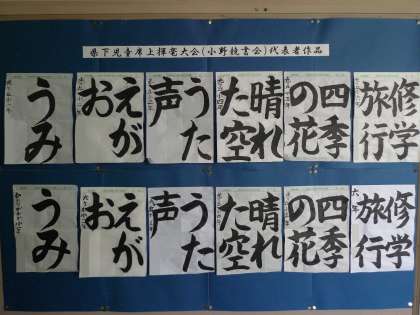 県下児童席上揮毫大会(小野競書会)代表者作品
うみ
えが
お
うた
声
晴れ
た空
四季
の花
修学
旅行
うみ
えが
お
うた
声
晴れ
た空
四季
の花
修学
旅行